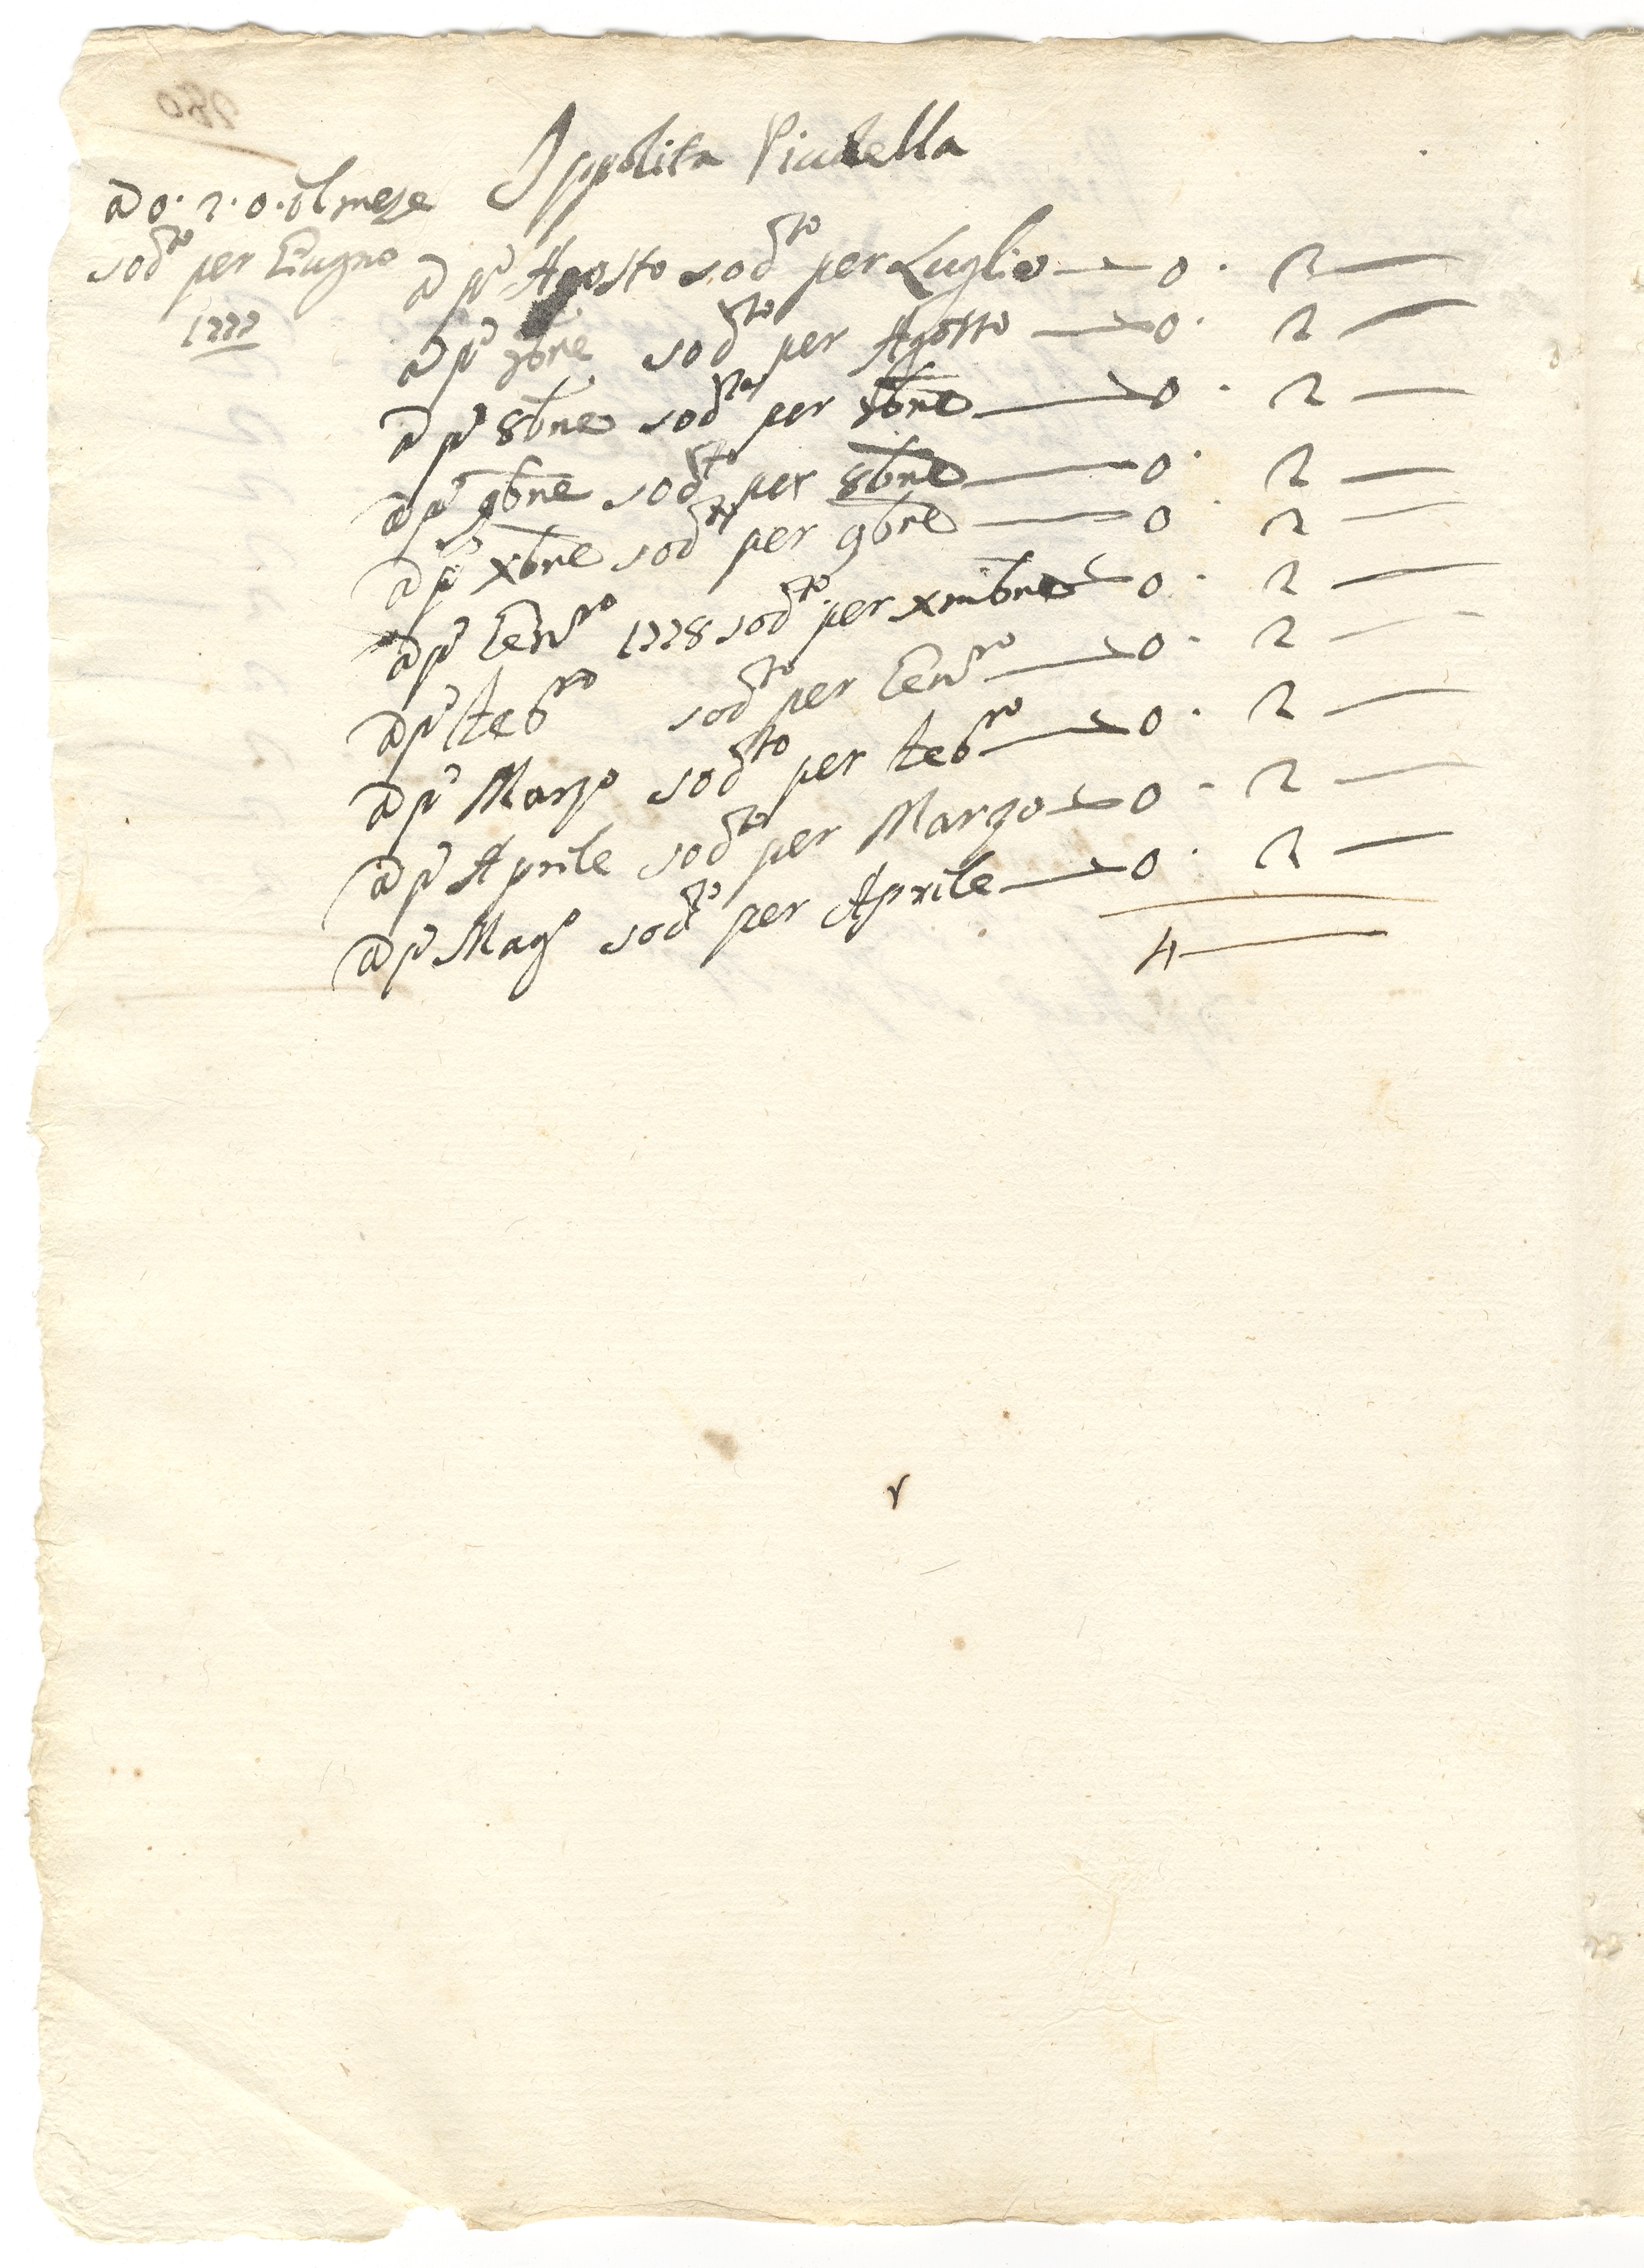 Ippolita Piatella
à 0. 2. 0. il mese
sod.to per Giugno
1777
à p.o Agosto sod.to per Luglio — 0. 2 —
à p.o 7bre sod.to per Agosto — 0. 2 —
à p.o 8bre sod.to per 7bre — 0. 2 —
à p.o 9bre sod.to per 8bre — 0. 2 —
à p.o xbre sod.to per 9bre — 0. 2 —
à p.o Gen.ro 1778 sod.to per xmbre — 0. 2 —
à p.o feb.ro sod.to per Gen.ro — 0. 2 —
à p.o Marzo sod.to per feb.ro — 0. 2 —
à p.o Aprile sod.to per Marzo — 0. 2 —
à p.o Mag.o sod.to per Aprile — 0. 2 —
4 —